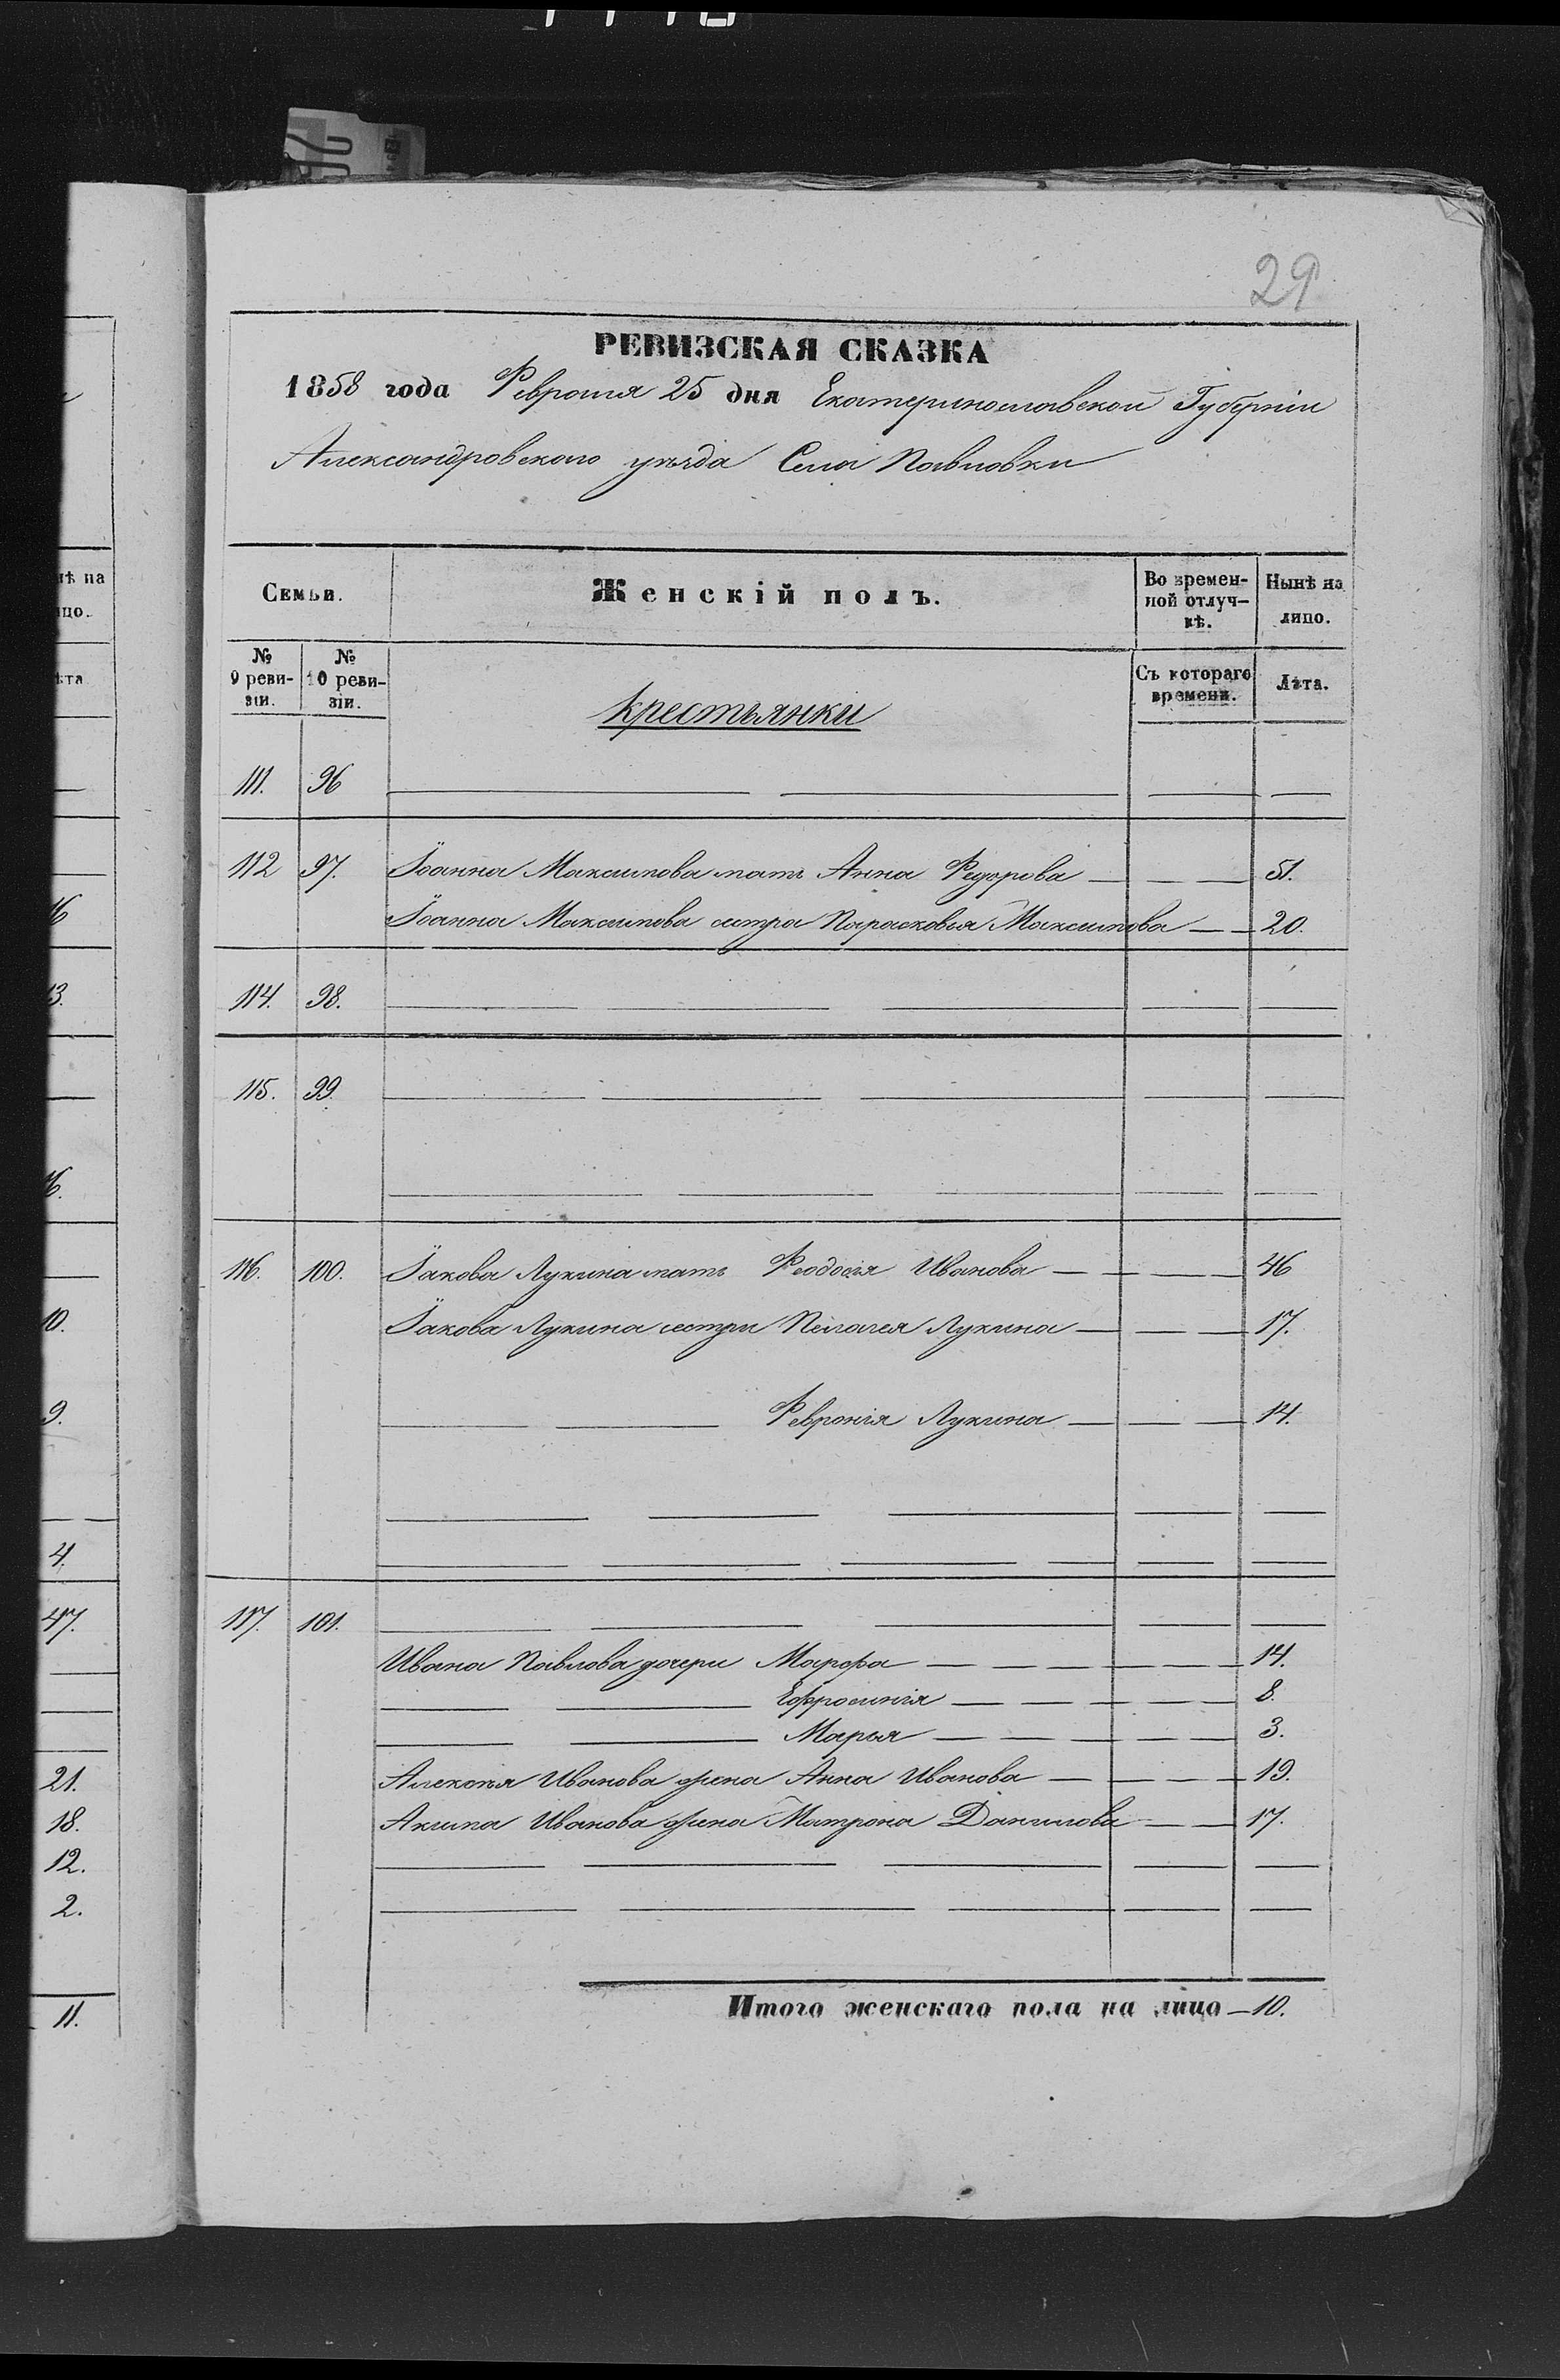 29
РЕВИЗСКАЯ СКАЗКА
1858 года Февраля 25 дня Екатеринославской Губерніи
Александровскаго уѣзда Села Павловки
Семьи. Женскій полъ. Во времен-ной отлуч-кѣ. Нынѣ на лицо.
№ 9 реви-зіи. № 10 реви-зіи. Съ котораго времени. Лѣта.
крестьянки
111. 96
112 97. Іоанна Максимова мать Анна Федорова 51.
Іоанна Максимова сестра Парасковья Максимова 20.
114. 98.
115. 99.
116. 100. Іакова Лукина мать Феодосія Иванова 46
Іакова Лукина сестры Пелагея Лукина 17.
Февронія Лукина 14.
117. 101.
Ивана Павлова дочери Марфа 14.
Ефросинія 8.
Марья 3.
Алексѣя Иванова жена Анна Иванова 19.
Акима Иванова жена Матрона Данилова 17.
Итого женскаго пола на лицо 10.
нѣ на
ицо.
ѣта
16
13.
16.
10.
9.
4.
47.
21.
18.
12.
2.
11.